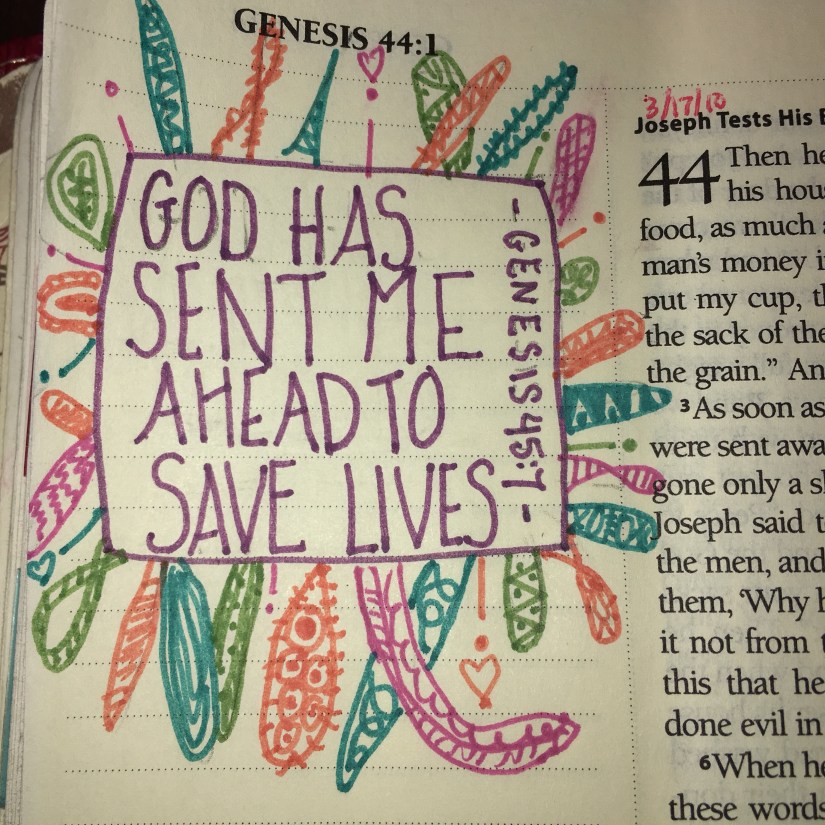 GENESIS 44:1
GOD HAS
SENT ME
AHEAD TO
SAVE LIVES
-GENESIS 45:7-
3/17/18
Joseph Tests His
44 Then he
his hous
food, as much
man's money i
put my cup, th
the sack of the
the grain." An
3As soon as
were sent awa
gone only a s
Joseph said t
the men, and
them, 'Why h
it not from t
this that he
done evil in
6When he
these words